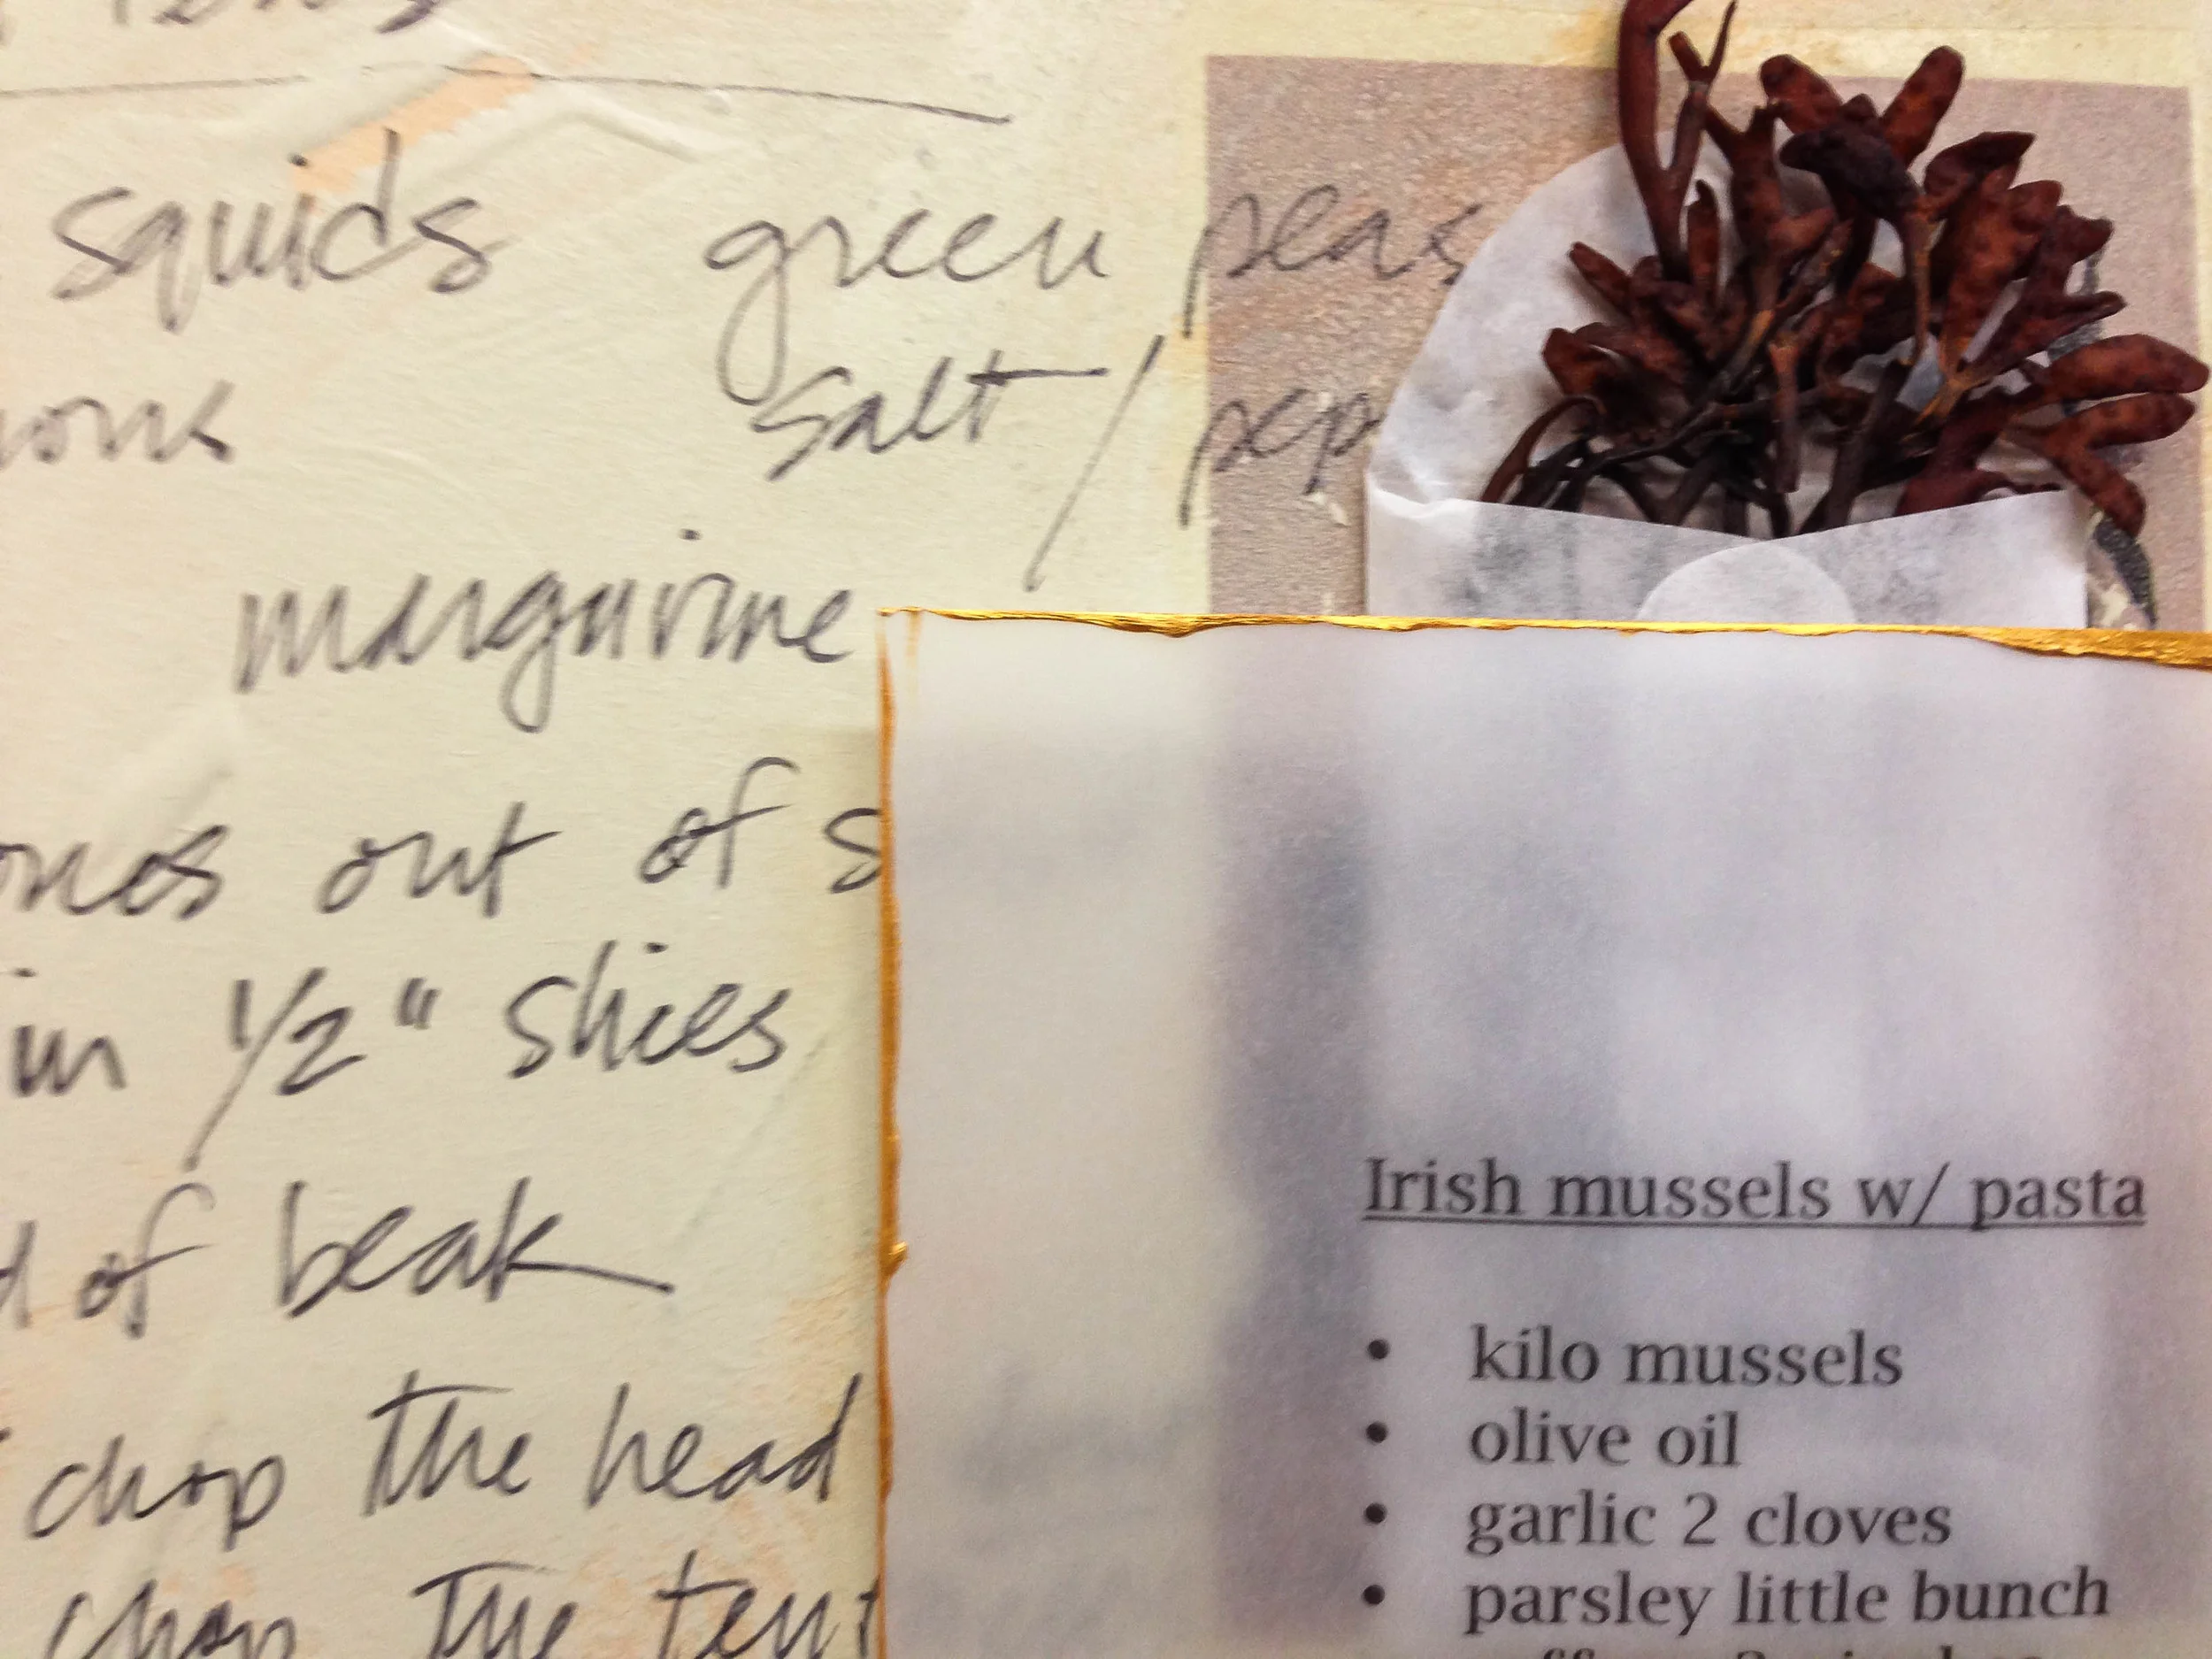 squids green peas
salt / pep
margarine
out of s
in 1/2" slices
of beak
chop the head
chop the tent
Irish mussels w/ pasta
• kilo mussels
• olive oil
• garlic 2 cloves
• parsley little bunch